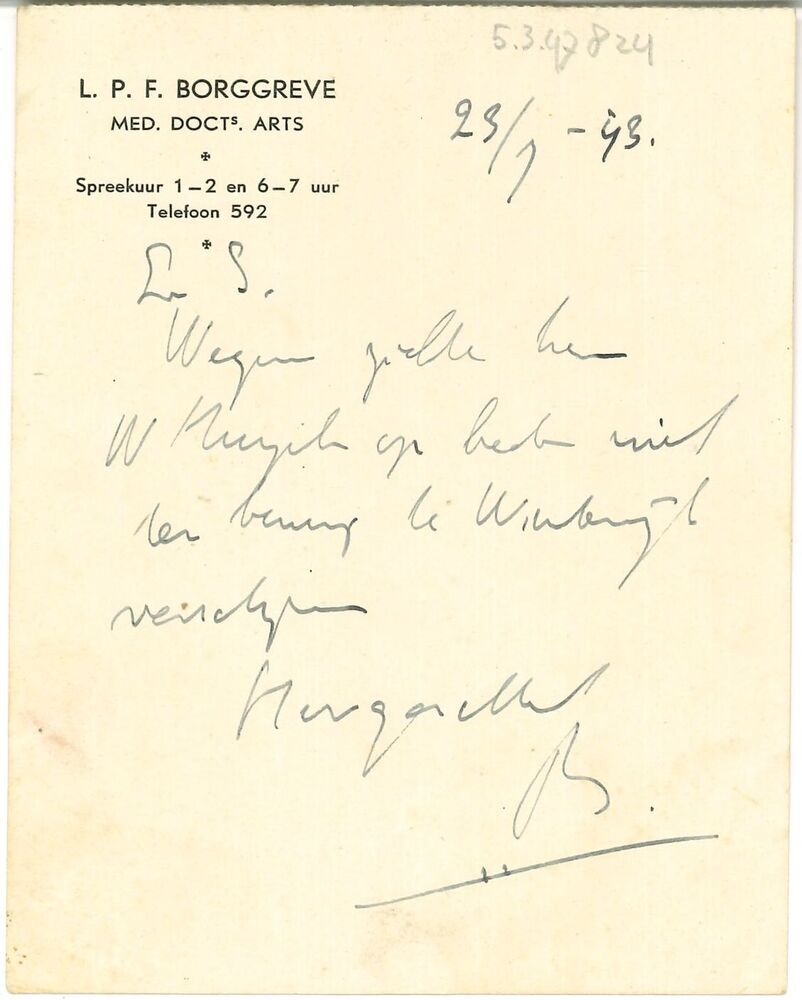 5.3.47 824
L. P. F. BORGGREVE
MED. DOCTS. ARTS
Spreekuur 1–2 en 6–7 uur
Telefoon 592
23/7 - 43.
L. S.
Wegens ziekte kan
W op heden niet
ter te Winterswijk
verschijnen
Hoogachtend
B.